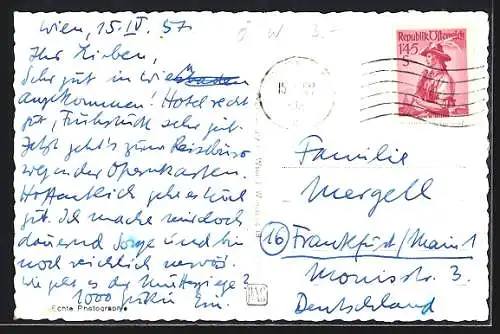 Wien, 15. IV. 57.
Ihr Lieben,
Sehr gut in Wien
angekommen! Hotel recht
gut, Frühstück sehr gut.
Jetzt geht's zum Reisebüro
wegen der Opernkarten.
Hoffentlich geht es Euch
gut. Ich mache mir doch
dauernd Sorge und bin
noch reichlich nervös.
Wie geht es der
1000 Grüße Eure
Echte Photographie
Ö W 3.-
Republik Österreich
1.45
S
Familie
Mergell
16 Frankfurt/Main 1
3.
Deutschland